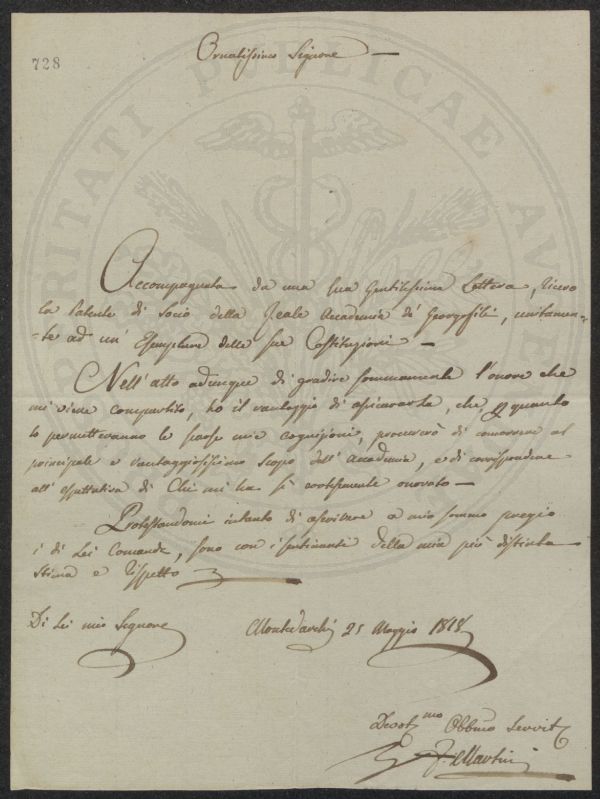 728
Ornatissimo Signore
Accompagnata da una sua gentilissima Lettera, ricevo
la Patente di Socio della Reale Accademia de' Georgofili, unitamen-
-te ad un' Esemplare delle sue Costituzioni —
Nell' atto adunque di gradire sommamente l'onore che
mi viene compartito, ho il vantaggio di assicurarla, che, p quanto
lo permetteranno le scarse mie cognizioni, procurerò di concorrere al
principale e vantaggiosissimo scopo dell' Accademia, e di corrispondere
all' espettativa di Chi mi ha sì cortesemente onorato —
Protestandomi intanto di ascrivere a mio sommo pregio
i di Lei Comandi, sono con i sentimenti della mia più distinta
stima e rispetto
Di Lei mio Signore
Montevarchi 25 Maggio 1818
Devot.mo Obbmo Servit
Martini